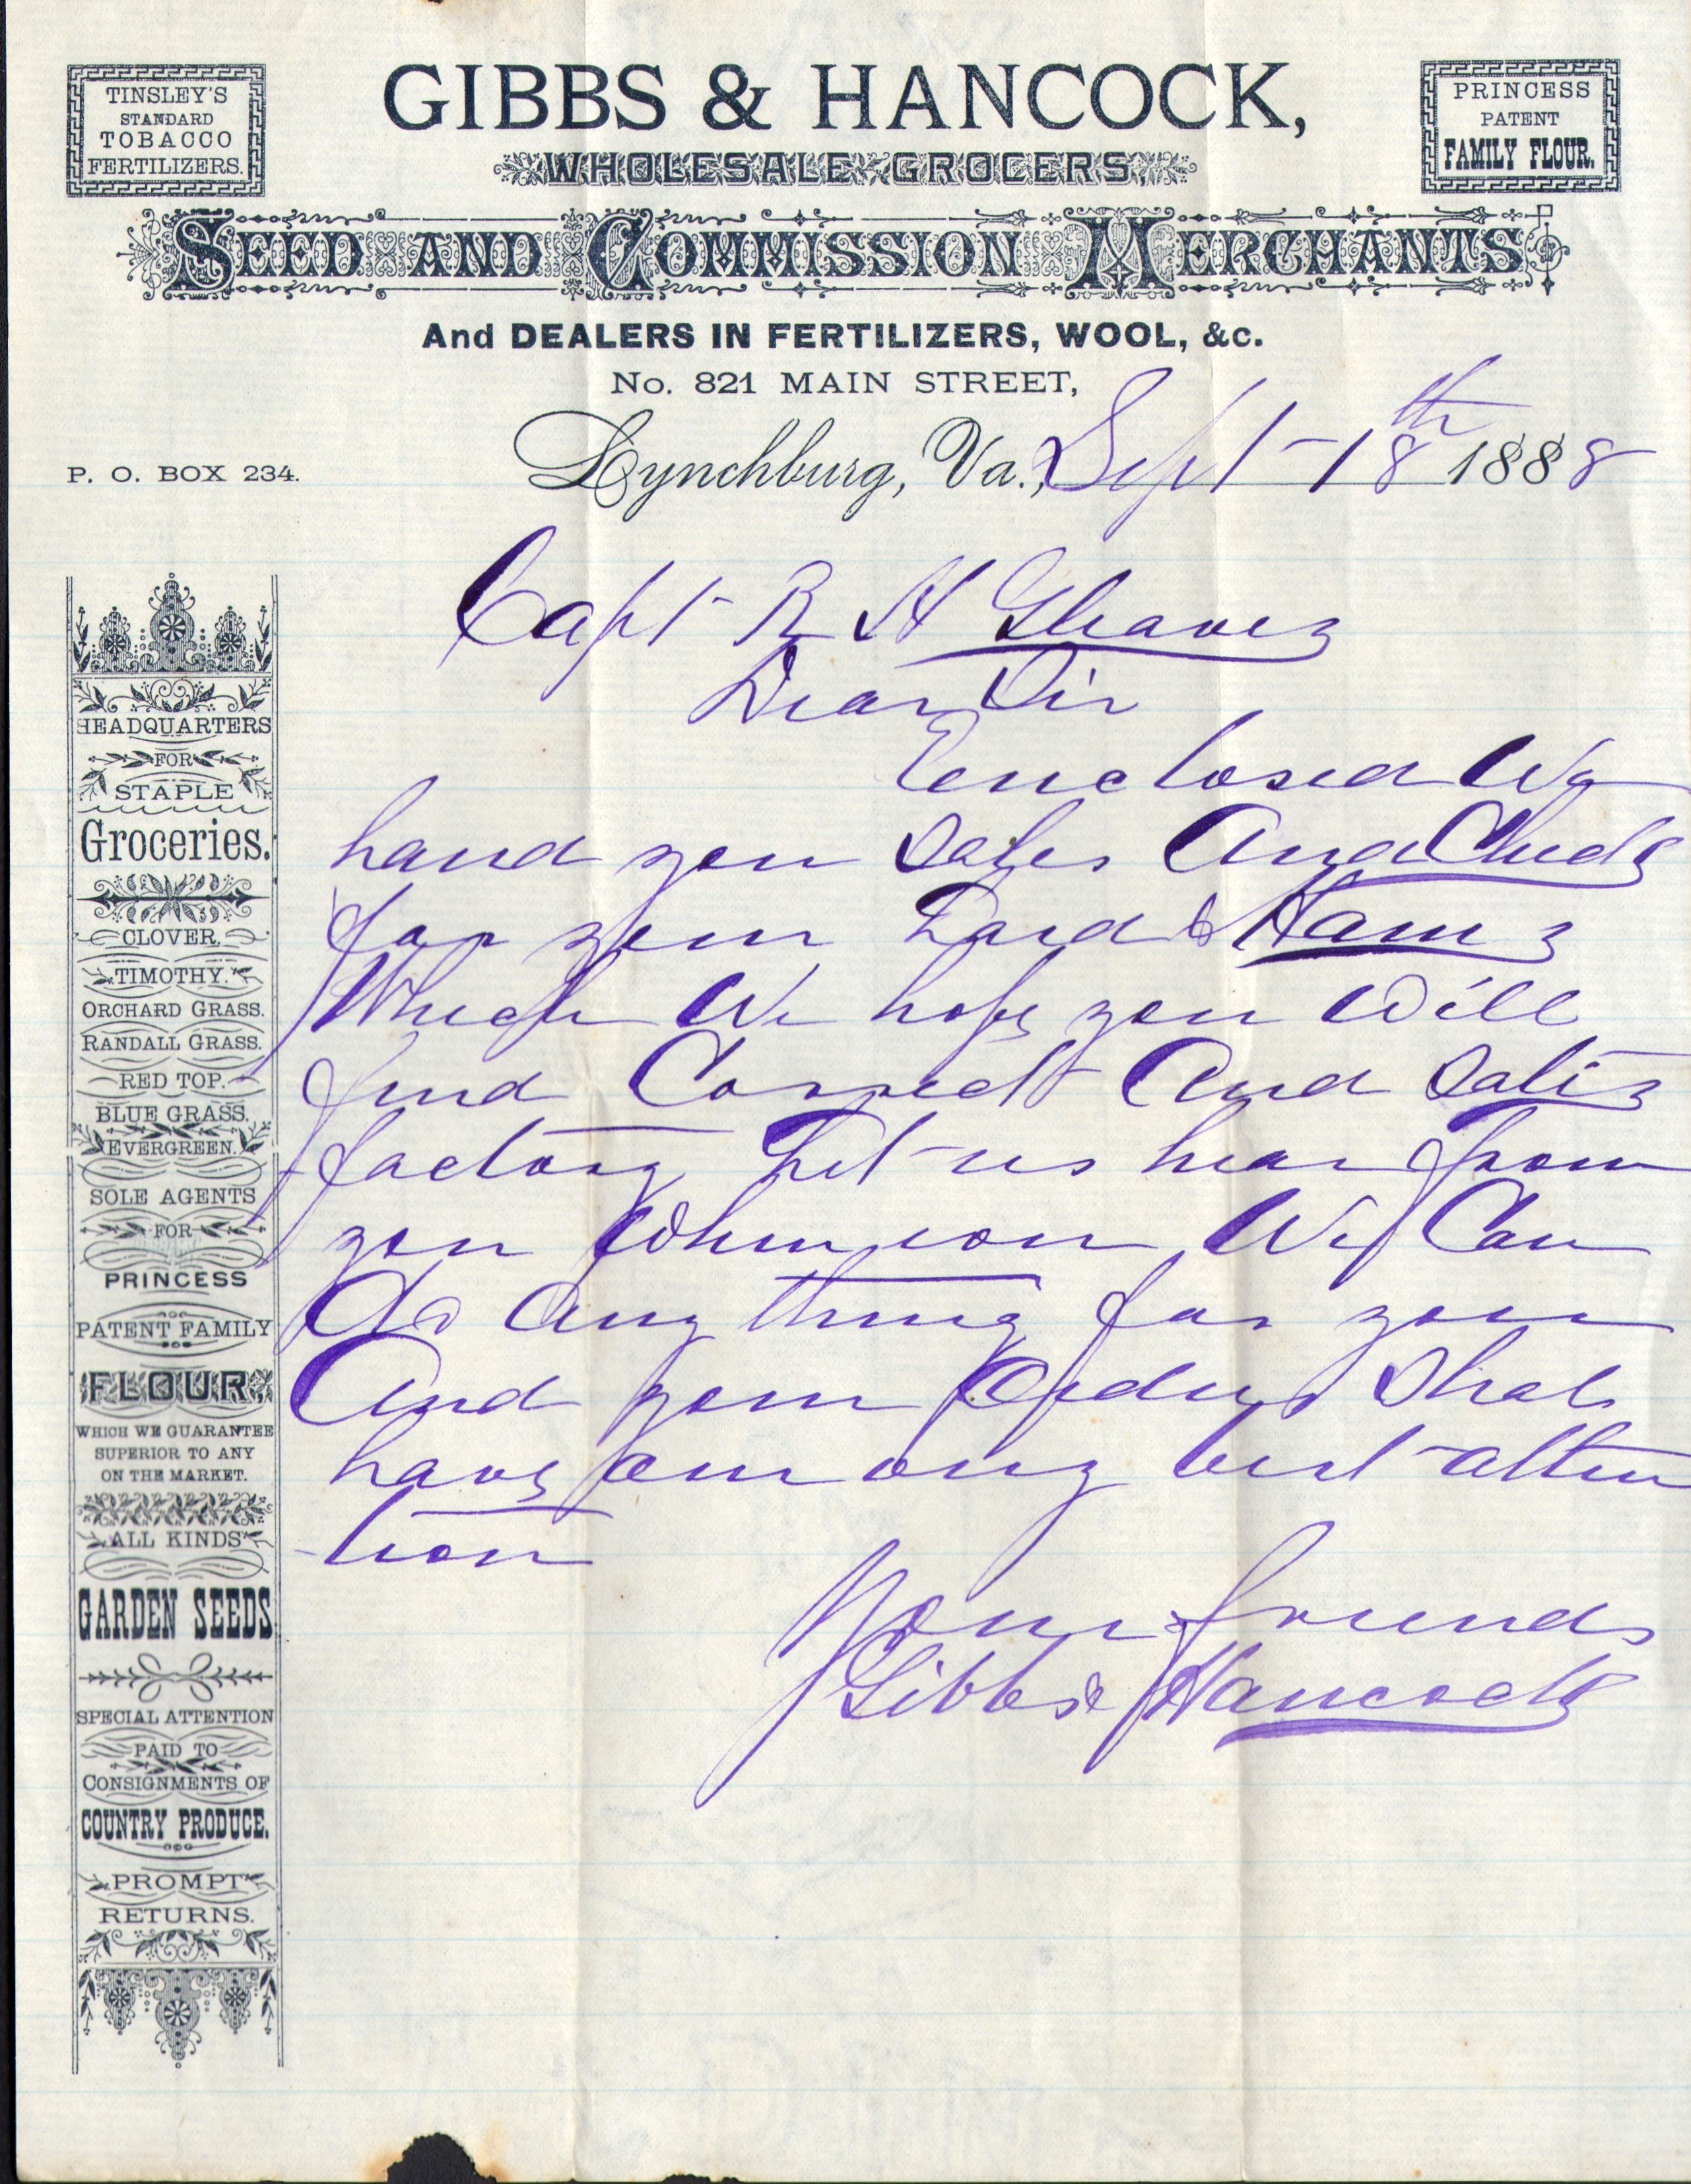 TINSLEY'S
STANDARD
TOBACCO
FERTILIZERS.
GIBBS & HANCOCK,
PRINCESS
PATENT
FAMILY FLOUR.
WHOLESALE GROCERS,
SEED AND COMMISSION MERCHANTS
And DEALERS IN FERTILIZERS, WOOL, &c.
No. 821 MAIN STREET,
P. O. BOX 234.
Lynchburg, Va., Sept 18th 1888
Capt R H Gleaves
Dear Sir
Enclosed We
hand you Sales And Check
for your Lard & Hams
Which We hope you Will
find Correct And Satis
factory Let us hear from
you When ever We Can
do any thing for you
And your Orders Shal
have our very best atten
tion
Your friends
Gibbs & Hancock
HEADQUARTERS
FOR
STAPLE
Groceries.
CLOVER,
TIMOTHY.
ORCHARD GRASS.
RANDALL GRASS.
RED TOP.
BLUE GRASS.
EVERGREEN.
SOLE AGENTS
FOR
PRINCESS
PATENT FAMILY
FLOUR
WHICH WE GUARANTEE
SUPERIOR TO ANY
ON THE MARKET.
ALL KINDS
GARDEN SEEDS
SPECIAL ATTENTION
PAID TO
CONSIGNMENTS OF
COUNTRY PRODUCE.
PROMPT
RETURNS.